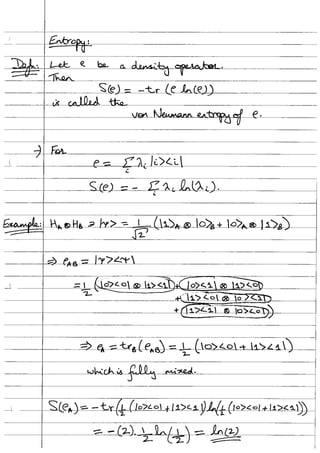 Entropy:
Defn: Let ρ be a density operator.
Then
S(ρ) = -tr (ρ ln(ρ))
is called the
von Neumann entropy of ρ.
→ For
ρ = Σ λi |i><i|
S(ρ) = - Σ λi ln(λi).
Example: HA⊗HB ∋ |Ψ> = 1/√2 (|1>A ⊗ |0>B + |0>A ⊗ |1>B)
⇒ ρAB = |Ψ><Ψ|
= 1/2 (|0><0| ⊗ |1><1| + |0><1| ⊗ |1><0|
+ |1><0| ⊗ |0><1|
+ |1><1| ⊗ |0><0|)
⇒ ρA = trB(ρAB) = 1/2 (|0><0| + |1><1|)
which is fully mixed.
S(ρA) = -tr(1/2 (|0><0| + |1><1|) ln(1/2 (|0><0| + |1><1|))
= -(2).1/2 ln(1/2) = ln(2)